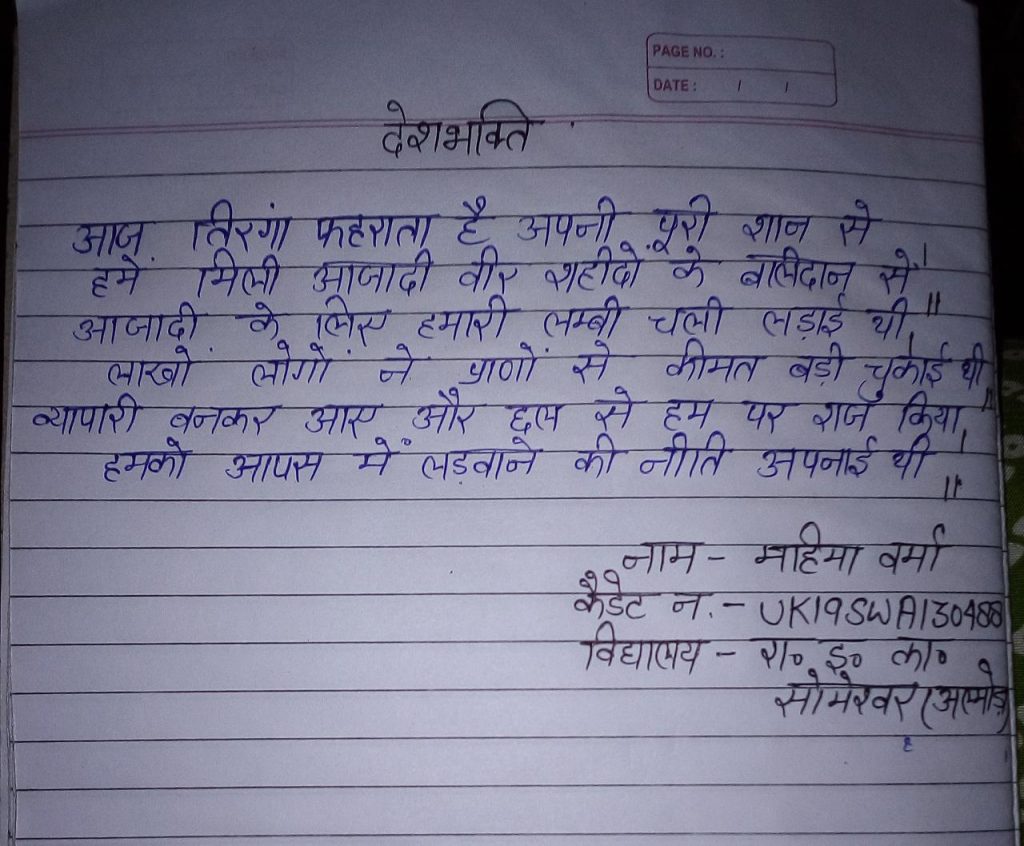 PAGE NO. :
DATE : / /
देशभक्ति
आज तिरगां फहराता है अपनी पूरी शान से
हमें मिली आजादी वीर शहीदों के बलिदान से।
आजादी के लिए हमारी लम्बी चली लड़ाई थी॥
लाखों लोगों ने प्राणों से कीमत बड़ी चुकाई थी।
व्यापारी बनकर आए और छल से हम पर राज किया॥
हमको आपस में लड़वाने की नीति अपनाई थी॥
नाम - महिमा वर्मा
कैडेट न. - UK19SWA130488
विद्यालय - रा० इ० का०
सोमेश्वर (अल्मोड़ा)